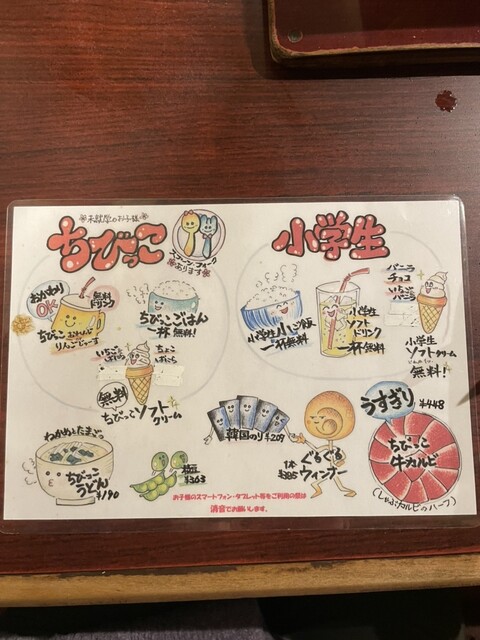 未就学のお子様
ちびっこ
スプーン、フォーク
あります
おかわり
OK
無料
ドリンク
ちびっこ
りんごじゅーす
ちびっこごはん
一杯 無料!
いちご
ちょこ
ばにら
無料
ちびっこソフト
クリーム
小学生
小学生小ご飯
一杯無料
小学生
ソフト
ドリンク
一杯無料
バニラ
チョコ
いちご
バニラ
小学生
ソフトクリーム
無料!
わかめとたまごの
ちびっこ
うどん
¥190
枝豆
¥363
韓国のり¥209
1本
¥385
ぐるぐる
ウィンナー
うすぎり
¥448
ちびっこ
牛カルビ
(しゃぶカルビのハーフ)
お子様のスマートフォン・タブレット等をご利用の際は
消音でお願いします。